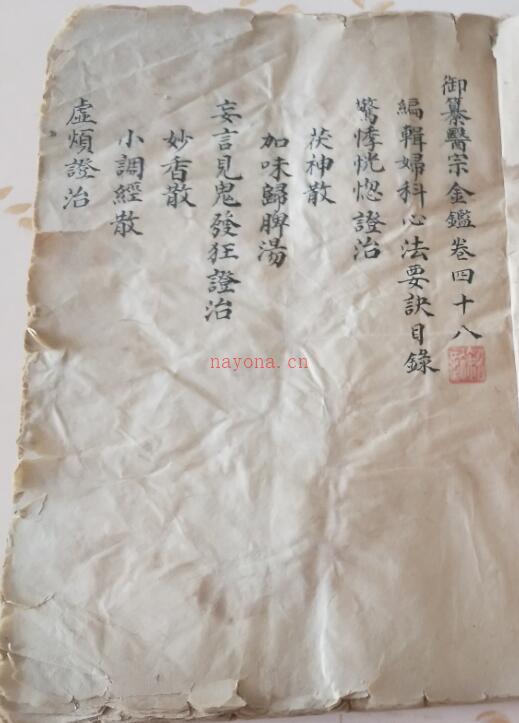 御纂醫宗金鑑卷四十八
編輯婦科心法要訣目錄
驚悸恍惚證治
茯神散
加味歸脾湯
妄言見鬼發狂證治
妙香散
小調經散
虛煩證治
nayona.cn